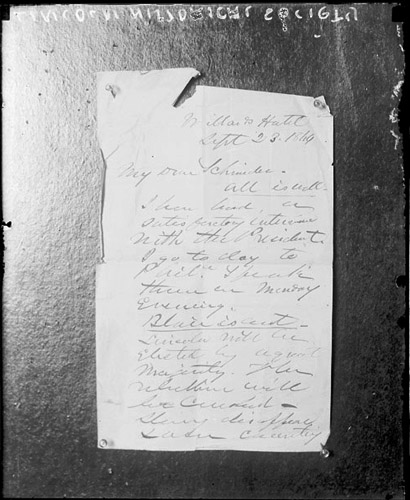 LINCOLN HISTORICAL SOCIETY
Willards Hotel
Sept 23. 1864.
My Dear Schneider.
All is well.
I have had a
satisfactory interview
with the President.
I go to day to
Phila. I speak
there on Monday
Evening.
Blair is out -
Lincoln will be
Elected by a great
Majority. The
rebellion will
be crushed -
Slavery disappears